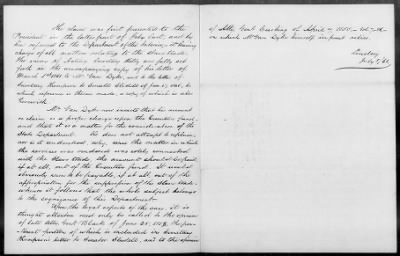 The claim was first presented to the
President in the latter part of July last, and by
him referred to the Department of the Interior, it having
charge of all matters relating to the Slave trade.
The views of Acting Secretary Kelly are fully set
forth in the accompanying copy of his letter of
March 1st 1861 to Mr Van Dyke, and in the letter of
Secretary Thompson to Senator Slidell of Jan 15, 1861, to
which reference is therein made, a copy of which is also
herewith.
Mr Van Dyke now insists that his amount
is claim is a proper charge upon the Executive fund,
and that it is a matter for the consideration of the
State Department. He does not attempt to explain,
nor is it understood, why, since the matter in which
the services was rendered was solely connected
with the Slave trade, the amount should be paid,
if at all, out of the Executive fund. It would
obviously seem to be payable, if at all, out of the
appropriation for the suppression of the Slave trade,
whence it follows that the whole subject belongs
to the cognizance of this Department.
Upon the legal aspects of the case, it is
thought attention need only be called to the opinion
of late Atto. Genl. Black of June 21, the
pertinent portion of which is included in Secretary
Thompson's letter to Senator Slidell, and to the opinion
of Atto Genl Cushing of April 1855
in which Mr Van Dyke himself
July